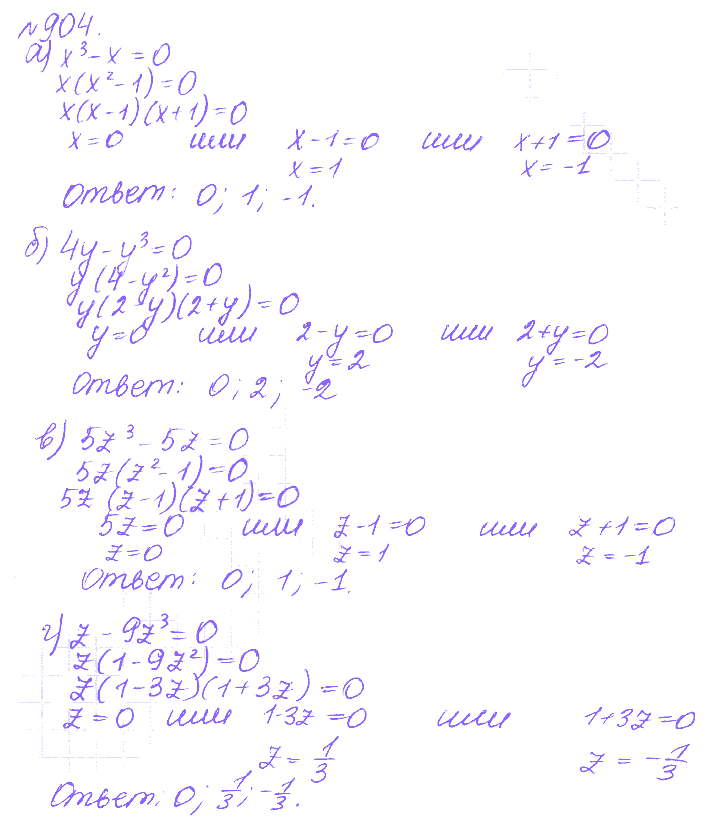 №904.
а) x³ - x = 0
x(x² - 1) = 0
x(x - 1)(x + 1) = 0
x = 0 или x - 1 = 0 или x + 1 = 0
x = 1 x = -1
Ответ: 0; 1; -1.
б) 4y - y³ = 0
y(4 - y²) = 0
y(2 - y)(2 + y) = 0
y = 0 или 2 - y = 0 или 2 + y = 0
y = 2 y = -2
Ответ: 0; 2; -2
в) 5z³ - 5z = 0
5z(z² - 1) = 0
5z(z - 1)(z + 1) = 0
5z = 0 или z - 1 = 0 или z + 1 = 0
z = 0 z = 1 z = -1
Ответ: 0; 1; -1.
г) z - 9z³ = 0
z(1 - 9z²) = 0
z(1 - 3z)(1 + 3z) = 0
z = 0 или 1 - 3z = 0 или 1 + 3z = 0
z = 1/3 z = -1/3
Ответ: 0; 1/3; -1/3.